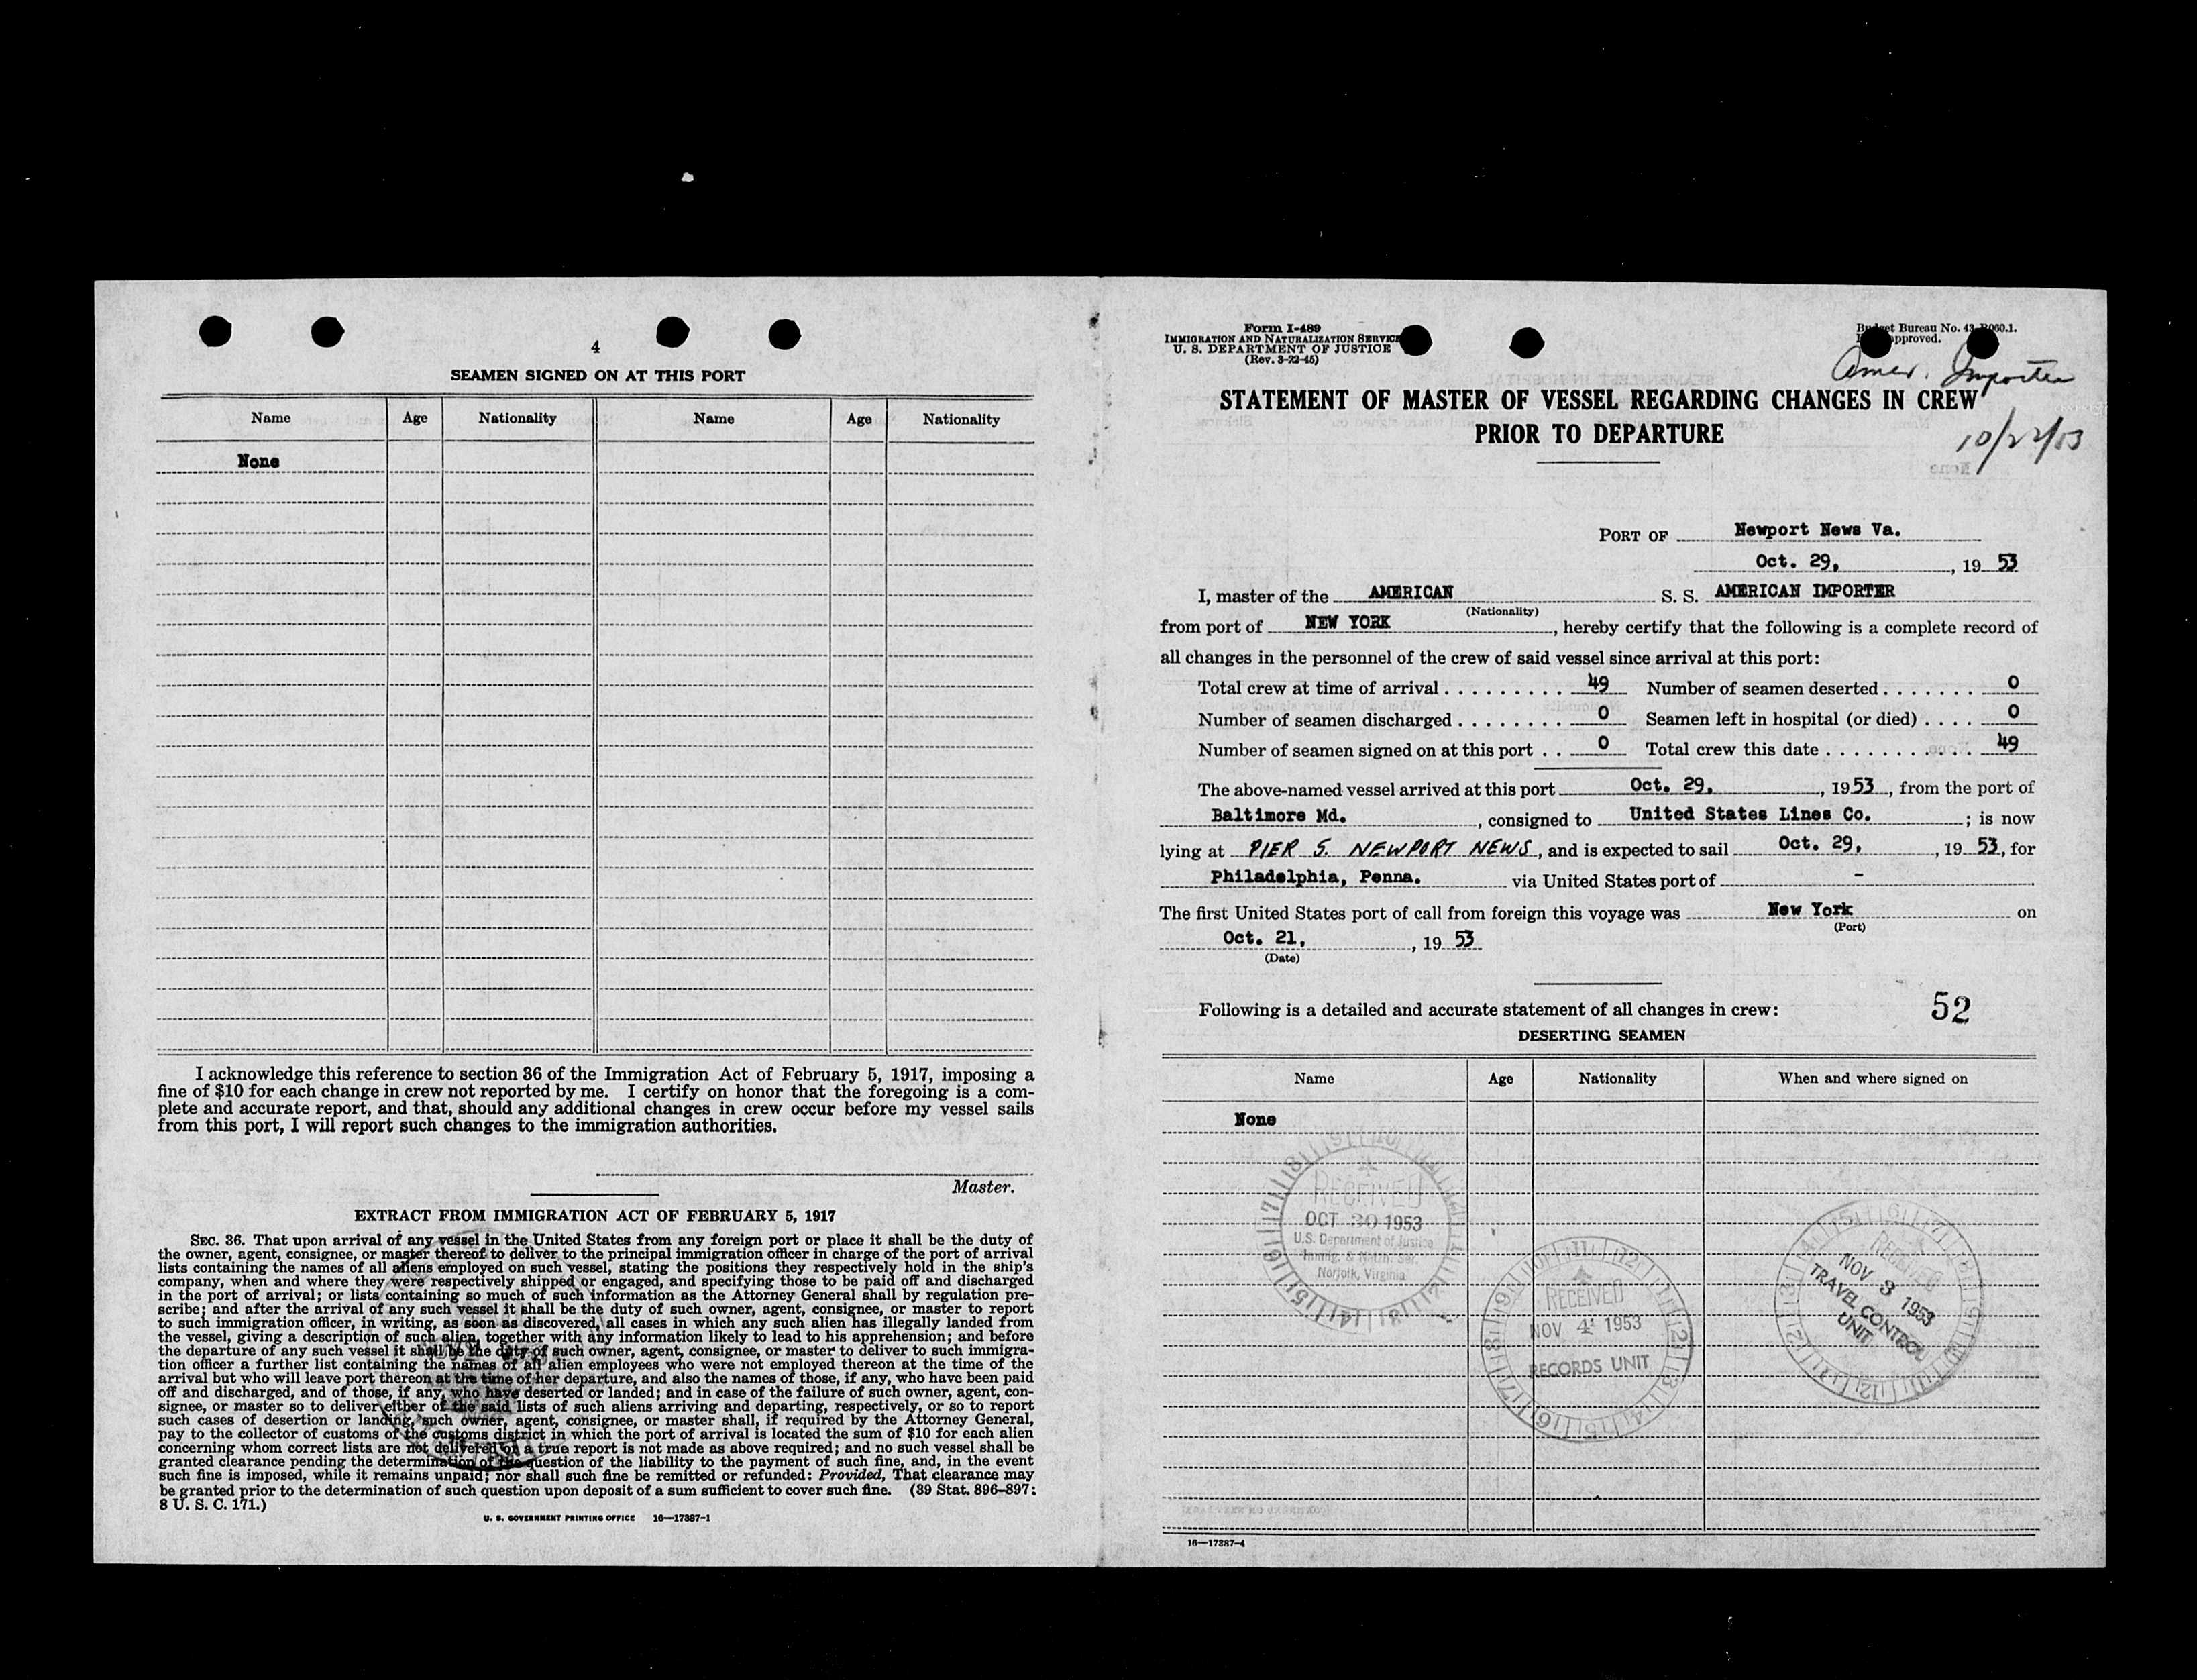 4
SEAMEN SIGNED ON AT THIS PORT
Name Age Nationality Name Age Nationality
None
I acknowledge this reference to section 36 of the Immigration Act of February 5, 1917, imposing a
fine of $10 for each change in crew not reported by me. I certify on honor that the foregoing is a com-
plete and accurate report, and that, should any additional changes in crew occur before my vessel sails
from this port, I will report such changes to the immigration authorities.
Master.
EXTRACT FROM IMMIGRATION ACT OF FEBRUARY 5, 1917
SEC. 36. That upon arrival of any vessel in the United States from any foreign port or place it shall be the duty of
the owner, agent, consignee, or master thereof to deliver to the principal immigration officer in charge of the port of arrival
lists containing the names of all aliens employed on such vessel, stating the positions they respectively hold in the ship's
company, when and where they were respectively shipped or engaged, and specifying those to be paid off and discharged
in the port of arrival; or lists containing so much of such information as the Attorney General shall by regulation pre-
scribe; and after the arrival of any such vessel it shall be the duty of such owner, agent, consignee, or master to report
to such immigration officer, in writing, as soon as discovered, all cases in which any such alien has illegally landed from
the vessel, giving a description of such alien, together with any information likely to lead to his apprehension; and before
the departure of any such vessel it shall be the duty of such owner, agent, consignee, or master to deliver to such immigra-
tion officer a further list containing the names of all alien employees who were not employed thereon at the time of the
arrival but who will leave port thereon at the time of her departure, and also the names of those, if any, who have been paid
off and discharged, and of those, if any, who have deserted or landed; and in case of the failure of such owner, agent, con-
signee, or master so to deliver either of the said lists of such aliens arriving and departing, respectively, or so to report
such cases of desertion or landing, such owner, agent, consignee, or master shall, if required by the Attorney General,
pay to the collector of customs of the customs district in which the port of arrival is located the sum of $10 for each alien
concerning whom correct lists are not delivered or a true report is not made as above required; and no such vessel shall be
granted clearance pending the determination of the question of the liability to the payment of such fine, and, in the event
such fine is imposed, while it remains unpaid; nor shall such fine be remitted or refunded: Provided, That clearance may
be granted prior to the determination of such question upon deposit of a sum sufficient to cover such fine. (39 Stat. 896–897;
8 U. S. C. 171.)
U. S. GOVERNMENT PRINTING OFFICE 16—17387-1
Form I-489
IMMIGRATION AND NATURALIZATION SERVICE
U. S. DEPARTMENT OF JUSTICE
(Rev. 3-22-45)
Bureau No.
approved.
Amer. Importer
10/22/53
STATEMENT OF MASTER OF VESSEL REGARDING CHANGES IN CREW
PRIOR TO DEPARTURE
PORT OF Newport News Va.
Oct. 29, , 19 53
I, master of the AMERICAN S. S. AMERICAN IMPORTER
(Nationality)
from port of NEW YORK, hereby certify that the following is a complete record of
all changes in the personnel of the crew of said vessel since arrival at this port:
Total crew at time of arrival . . . . . . . . . 49 Number of seamen deserted . . . . . . . 0
Number of seamen discharged . . . . . . . . 0 Seamen left in hospital (or died) . . . . 0
Number of seamen signed on at this port . . 0 Total crew this date . . . . . . . . . . . 49
The above-named vessel arrived at this port Oct. 29, , 19 53, from the port of
Baltimore Md. , consigned to United States Lines Co. ; is now
lying at PIER 5. NEWPORT NEWS, and is expected to sail Oct. 29, , 19 53, for
Philadelphia, Penna. via United States port of -
The first United States port of call from foreign this voyage was New York on
(Port)
Oct. 21, , 19 53
(Date)
Following is a detailed and accurate statement of all changes in crew: 52
DESERTING SEAMEN
Name Age Nationality When and where signed on
None
RECEIVED
OCT 30 1953
U.S. Department of Justice
Immig. & Natzn. Ser.
Norfolk, Virginia
RECEIVED
NOV 4 1953
RECORDS UNIT
RECEIVED
NOV 3 1953
TRAVEL CONTROL
UNIT
16—17387-4